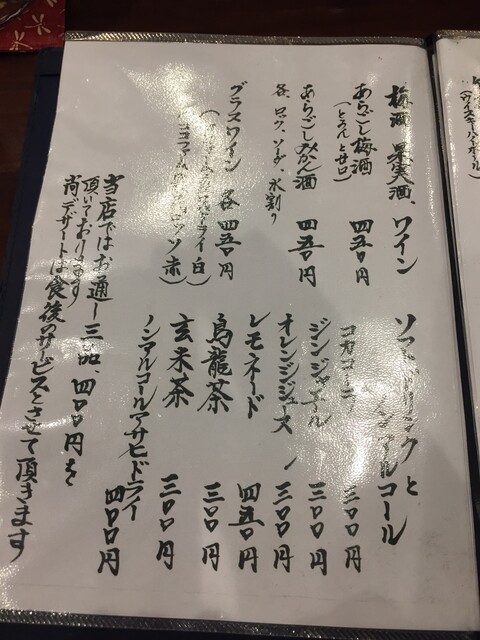 梅酒、果実酒、ワイン
あらごし梅酒 四五〇円
(とろんと甘口)
あらごしみかん酒 四五〇円
各、ロック、ソーダ、水割り
グラスワイン 各 四五〇円
ドライ 白)
ロッソ 赤)
ソフトドリンクと
ノンアルコール
コカコーラ 三〇〇円
ジンジャエール 三〇〇円
オレンジジュース 三〇〇円
レモネード 四五〇円
烏龍茶 三〇〇円
玄米茶 三〇〇円
ノンアルコールアサヒドライ
四〇〇円
当店ではお通し三品、四〇〇円を
頂いております
尚、デザートは食後のサービスとさせて頂きます
(ウイスキーハイボール)